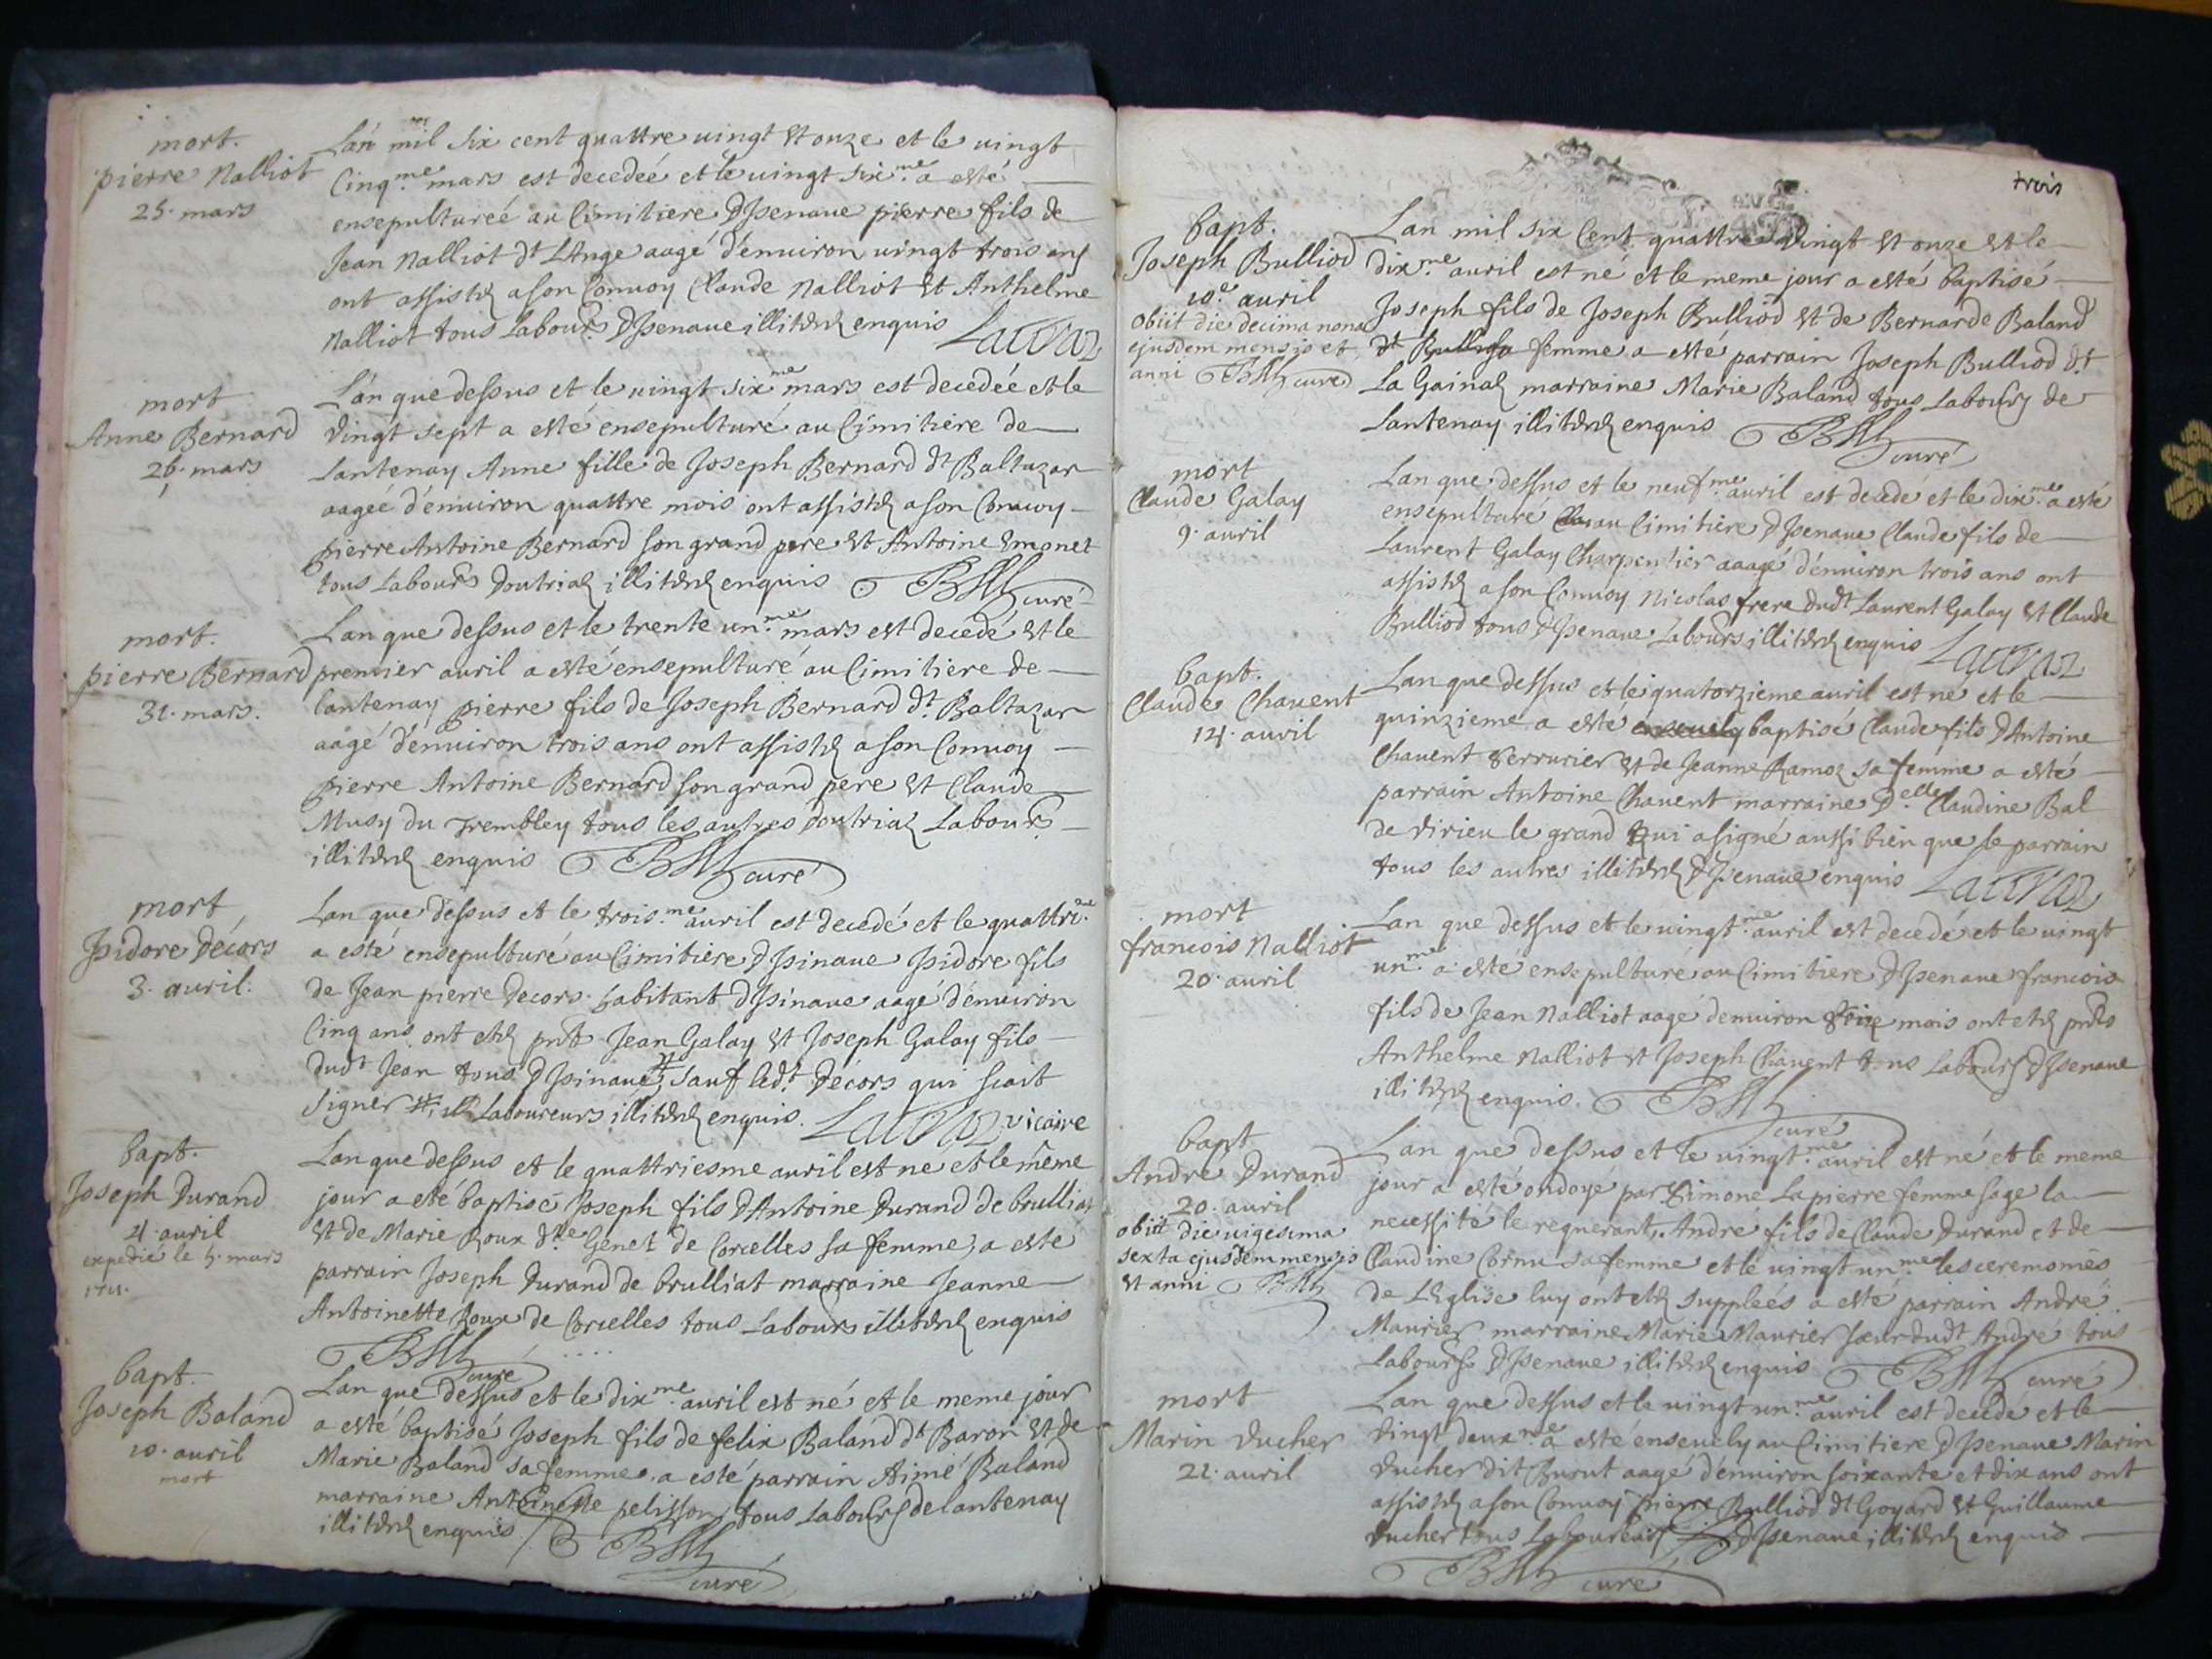 mort.
pierre Nalliot
25. mars
Lan mil six cent quattre uingt et onze et le uingt
Cinq.me mars est decedée et le uingt six.me a esté
ensepulturéé au Cimitiere d'Isenaue pierre fils de
Jean Nalliot dt L'Ange aagé d'enuiron uingt trois ans
ont assistez a son Conuoy Claude Nalliot et Anthelme
Nalliot tous Labours d'Isenaue illiterez enquis Lauraz
mort
Anne Bernard
26. mars
L'an que dessus et le uingt six.me mars est decedée et le
Vingt sept a esté ensepulturé au Cimitiere de
Lantenay Anne fille de Joseph Bernard dt Baltazar
aagéé d'enuiron quattre mois ont assistez a son Conuoy
pierre Antoine Bernard son grand pere et Antoine Emonet
tous Labours Doutriaz illiterez enquis curé
mort.
pierre Bernard
31. mars.
Lan que dessus et le trente un.me mars est decedé et le
premier auril a esté ensepulturé au Cimitiere de
lantenay pierre fils de Joseph Bernard dt. Baltazar
aagé d'enuiron trois ans ont assistez a son Conuoy
pierre Antoine Bernard son grand pere et Claude
Musy du Trembley tous les autres Doutriaz Labours
illiterez enquis curé
mort
Isidore Décors
3. auril.
Lan que dessus et le trois.me auril est decedé et le quattri.me
a esté ensepulturé au Cimitiere d'Isinaue Isidore fils
de Jean pierre Decors habitant d'Isinaue aagé d'enuiron
Cinq ans ont etez pnts Jean Galay et Joseph Galay fils
dudt Jean tous d'Isinaue sauf ledt. Décors qui scait
signer Laboureurs illiterez enquis. Lauraz vicaire
bapt.
Joseph Durand
4. auril
expedié le 5. mars
1711.
Lan que dessus et le quattriesme auril est né et le même
jour a eté baptisé Joseph fils d'Antoine Durand de brulliat
et de Marie Roux dte Genet de Corcelles sa femme, a esté
parrain Joseph Durand de brulliat marraine Jeanne
Antoinette Roux de Corcelles tous Labours illiterez enquis
curé
bapt.
Joseph Baland
10. auril
mort
Lan que dessus et le dix.me auril est né et le meme jour
a esté baptisé Joseph fils de felix Baland dt Baron et de
Marie Baland sa femme. a esté parrain Aimé Baland
marraine Antoinette pelisson tous Labours de lantenay
illiterez enquis
curé
trois
bapt.
Joseph Bulliod
10e. auril
obiit die decima nona
ejusdem mensis et
anni curé
Lan mil six Cent quattre Vingt et onze et le
dix.me auril est né et le meme jour a esté baptisé
Joseph fils de Joseph Bulliod et de Bernarde Baland
dt femme a esté parrain Joseph Bulliod dt
La Gainaz marraine Marie Baland tous Labours de
Lantenay illiterez enquis
curé
mort
Claude Galay
9. auril
Lan que dessus et le neuf.me auril est decedé et le dix.me a esté
ensepulturé au Cimitiere d'Isenaue Claude fils de
Laurent Galay Charpentier aaagé d'enuiron trois ans ont
assistez a son Conuoy Nicolas frere dudt Laurent Galay et Claude
Bulliod tous d'Isenaue Labours illiterez enquis Lauraz
bapt.
Claude Chauent
14. auril
Lan que dessus et le quatorzieme auril est né et le
quinzieme a esté baptisé Claude fils d'Antoine
Chauent Serrurier et de Jeanne Ramoz sa femme a esté
parrain Antoine Chauent marraine D.elle Claudine Bal
de Virieu le grand qui a signé aussi bien que le parrain
tous les autres illiterez d'Isenaue enquis Lauraz
mort
francois Nalliot
20. auril
Lan que dessus et le uingt.me auril est decedé et le uingt
un.me a esté ensepulturé au Cimitiere d'Isenaue francois
fils de Jean Nalliot aagé denuiron mois ont etez pnts
Anthelme Nalliot et Joseph Chauent tous Labours d'Isenaue
illiterez enquis.
curé
bapt
André Durand
20. auril
obiit die uigesima
sexta ejusdem mensis
et anni
Lan que dessus et le uingt.me auril est né et le meme
jour a esté ondoyé par Simone Lapierre femme sage la
necessité le requerant, André fils de Claude Durand et de
Claudine Cornu sa femme et le uingt un.me les ceremonies
de L'Eglise luy ont etez suppléés a esté parrain André
Maurier marraine Marie Maurier sœur dudt André tous
Labours d'Isenaue illiterez enquis curé
mort
Marin Ducher
21. auril
Lan que dessus et le uingt un.me auril est decedé et le
Vingt deux.me a esté enseuely au Cimitiere d'Isenaue Marin
Ducher dit aagé d'enuiron soixante et dix ans ont
assistez a son Conuoy pierre Bulliod dt Goyard et Guillaume
Ducher tous Laboureurs d'Isenaue illiterez enquis
curé